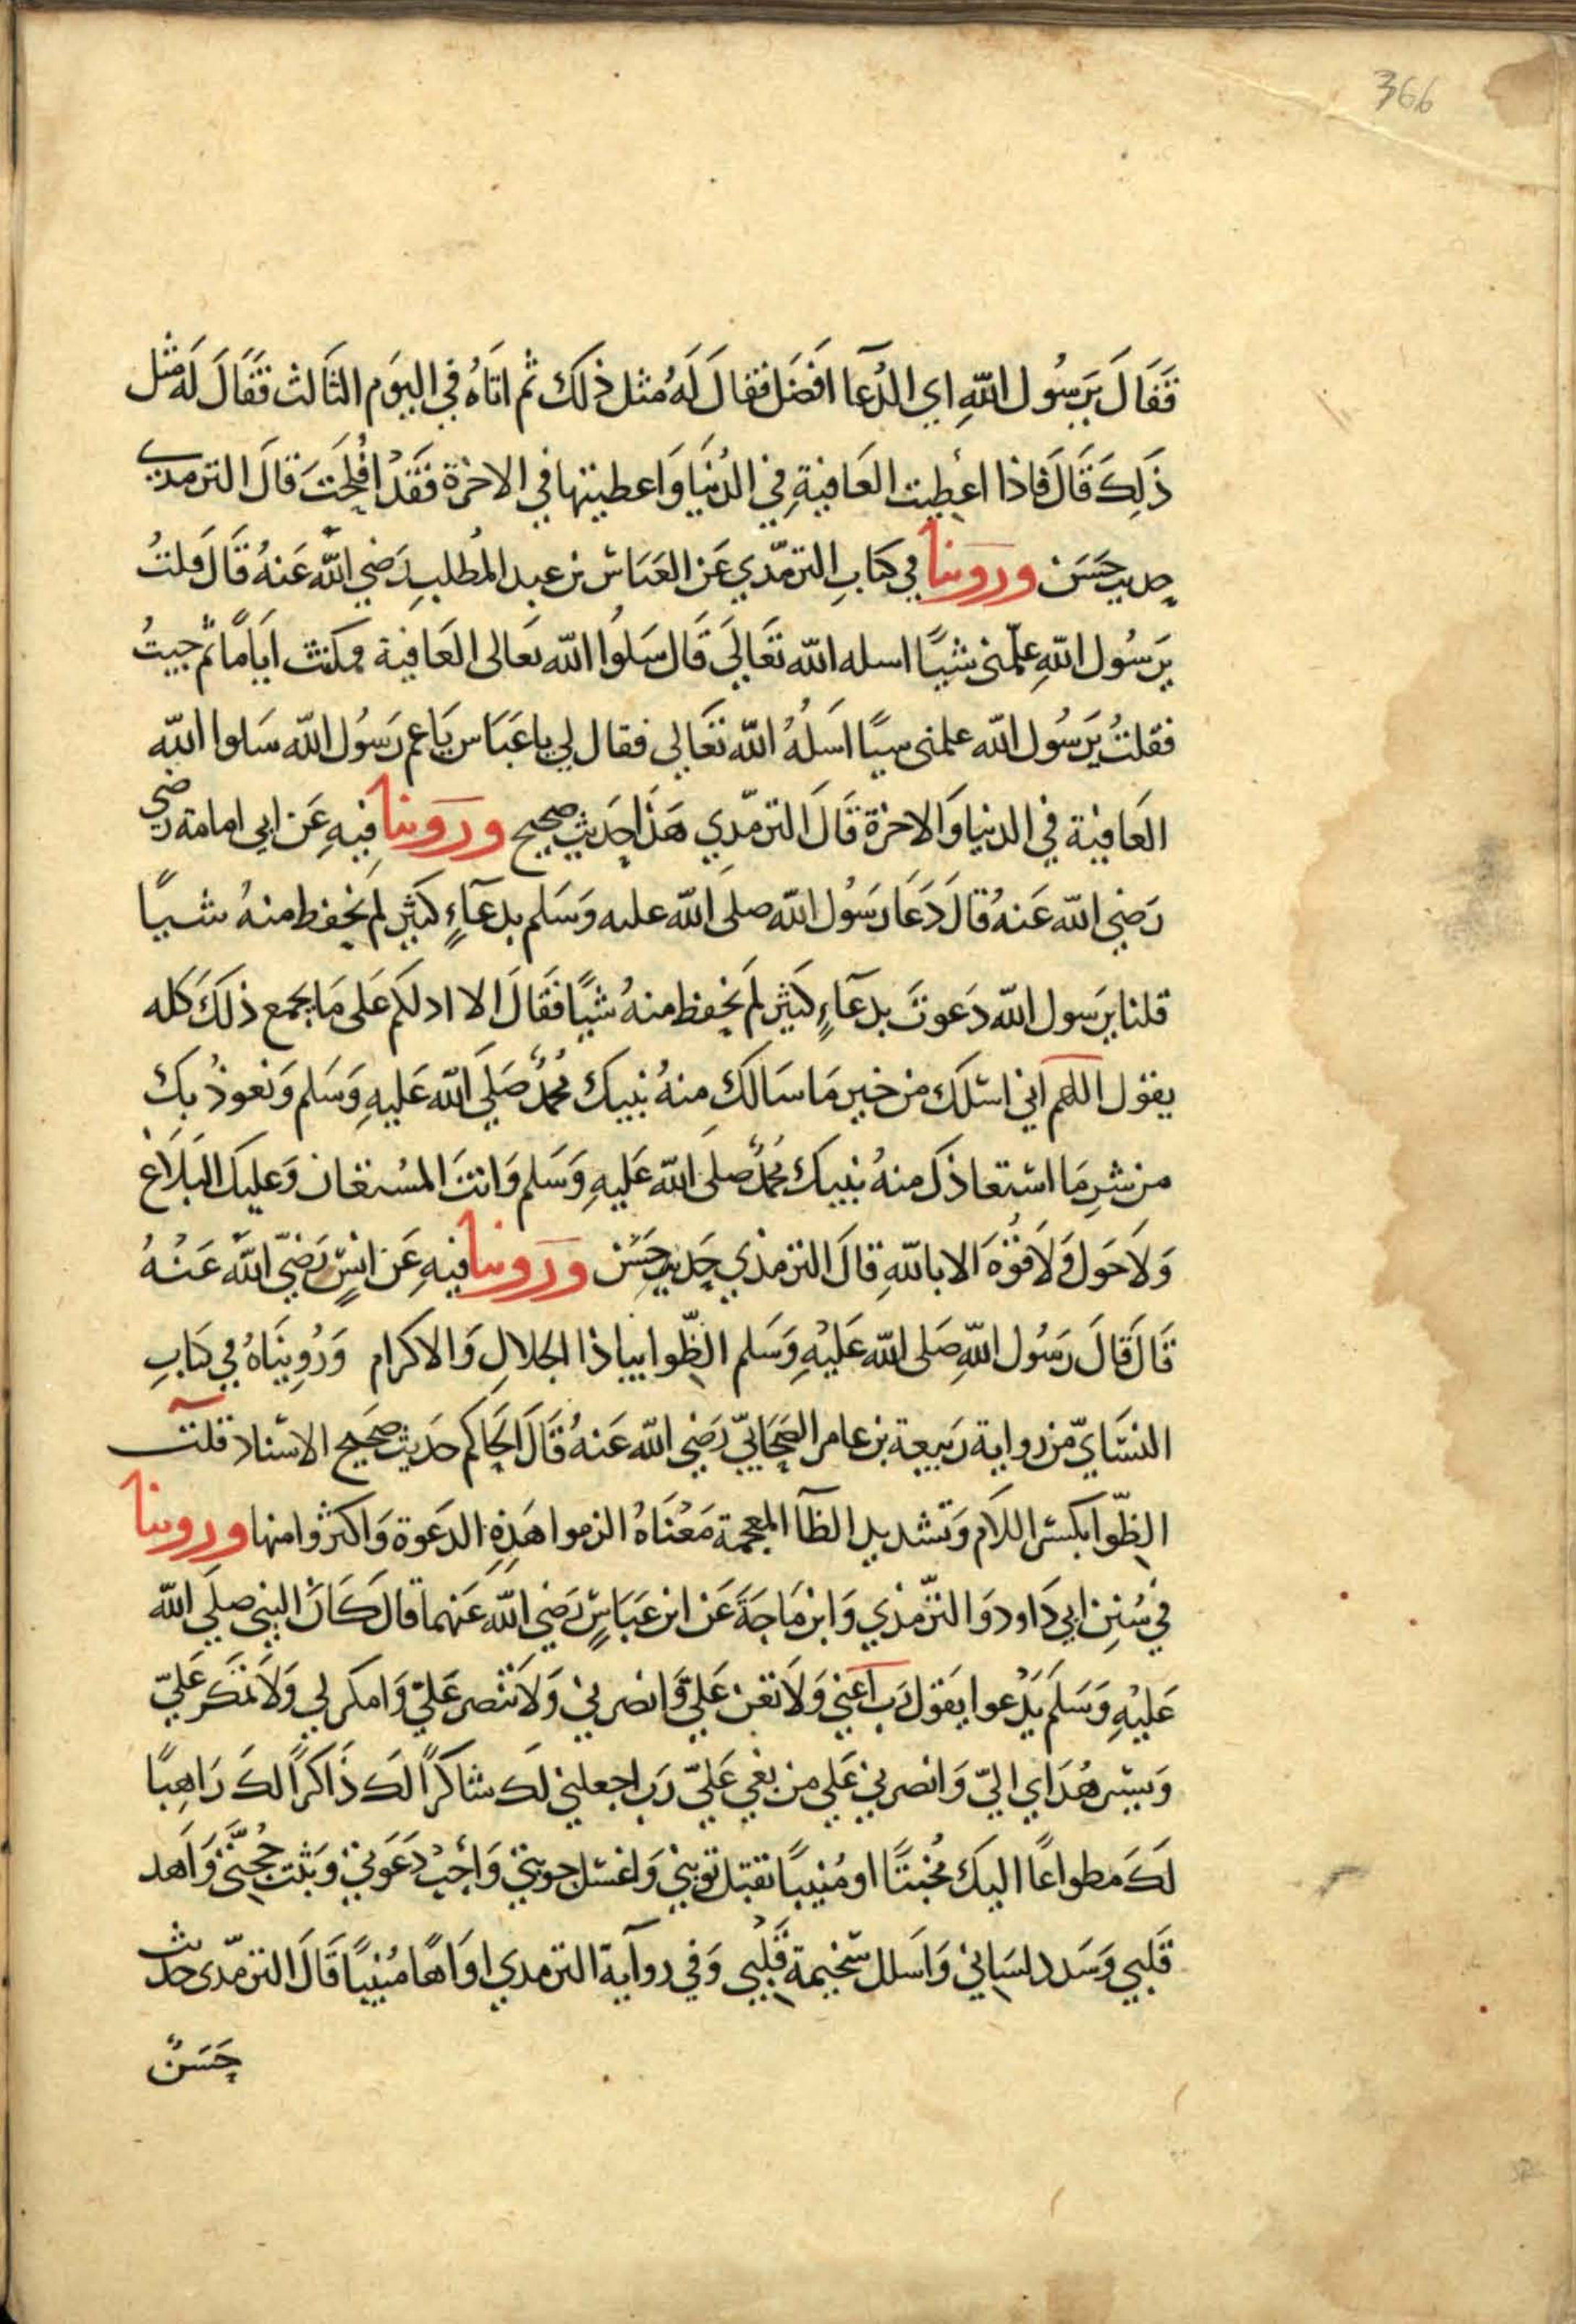 366
فَقَالَ يَرَسُول اللهِ اي الدُعَآ افَضَل فقال لَهُ مثل ذلكَ ثم اتَاهُ في اليوَم الثالث فَقَالَ لَه مثل
ذَلِكَ قَالَ فاذا اعطِيت العَافيةِ في الدُنيَا وَاعطيتها في الاخرَة فَقَدْ افْلَحَتَ قالَ الترمدي
حديث حَسَن ورَوينا في كتابِ الترمّدي عَن العَبَاس بن عبد المُطلب رَضي الله عَنهُ قَالَ قلتُ
يرَسُول اللهِ علّمني شيًا اسله الله تعَالَى قَال سَلوُا الله تعَالى العَافية فمكثت ايَامًا ثم جيتُ
فقلتُ يرَسُول الله علمني سيًا اسَلهُ الله تعَالى فقال لي يا عَبَاس يَا عم رَسُول الله سَلوا الله
العَافية في الدنيا وَالاخرة قَالَ الترمّدي هَذَا حَديث صحيح ورَوينا فيهِ عَن ابي امامة رضي
رَضي الله عَنهُ قالَ دَعَا رَسُول الله صلى الله عليه وَسَلم بدعَآءٍ كثير لم نحفط منهُ شيًا
قلنا يرَسول الله دَعوتَ بدعَآءٍ كثير لَم نحفظ منهُ شيًا فقَالَ الا ادلكم عَلى مَا يجمع ذلكَ كله
يقول اللهم اني اسئلكَ من خير مَا سَالكَ منهُ نبيك مُحمدٌ صَلى الله عَليهِ وَسَلم وَنعوذُ بكَ
من شرِ مَا استعاذكَ منهُ نبيك مُحمدٌ صلى الله عَليهِ وَسَلم وَانتَ المسُتعَان وَعليكَ البَلَاغ
وَلَا حَول وَلَا قوُةَ الا باللهِ قالَ الترمذي حَديث حَسَن ورَوينا فيهِ عَن انسٍ رَضيَ اللهُ عَنْهُ
قَالَ قَالَ رَسُول اللهِ صَلى الله عَليْهِ وَسَلم الظّوا بيا ذا الجلالِ وَالاكرام وَرُوِينَاهُ في كتابِ
النسَايّ من رواية رَبيعة بن عامر الصَحَابيّ رَضي الله عَنهُ قَالَ الحَاكم حَديث صَحيح الاسناد قلت
الظّوا بكسر اللام وَتشديد الظآ المعجمة مَعْنَاهُ الزموا هَذِهِ الدَعوة وَاكثروا منها ورَوينا
في سُننِ ابي دَاود وَالترّمذي وَابن مَاجَةَ عَن ابن عَبَاسٍ رَضي الله عَنهما قال كَانَ النبي صلى الله
عَليْهِ وَسَلَم يَدْعوا يقول رَب اَعني وَلَا تعن عَليّ وَانصرني وَلَا تنصر عَليّ وَامكر لي وَلَا تمكَر عَليّ
وَيسر هُدَاي اليّ وَانصرني عَلى من بغي عَليّ رَب اجعلني لكَ شاكرًا لكَ ذَاكرًا لكَ رَاهِبًا
لكَ مطواعًا اليكَ مُخبتًا او مُنيبًا تقبل توبتي وَاغسل حوبتي وَأجِبْ دَعوَتي وَثبت حُجَّتي وَاهد
قَلبي وَسَدد لسَاني وَاسَلل سَخيمة قَلْبي وَفي روآية الترمدي اوَاهًا مُنيبًا قَالَ الترمّدى حديث
حَسَنٌ